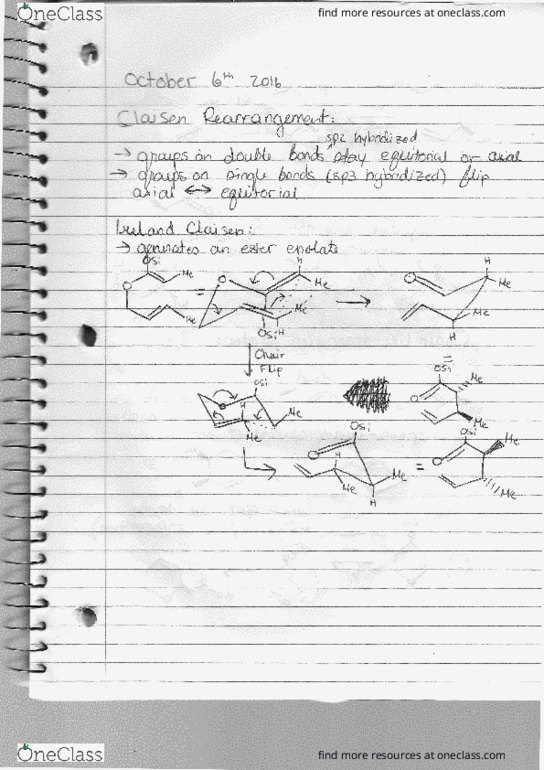 OneClass
find more resources at oneclass.com
October 6th 2016
Claisen Rearrangement:
sp2 hybridized
→ groups on double bonds stay equitorial or axial
→ groups on single bonds (sp3 hybridized) flip
axial ↔ equitorial
Ireland Claisen:
→ generates an ester enolate
OSi
Me
O
Me
=
O
H
Me
Me
OSi
H
→
O
H
Me
Me
H
Chair
Flip
=
OSi
O
H
Me
Me
OSi
O
Me
Me
OSi
O
H
Me
Me
H
=
OSi
O
Me
Me
OneClass
find more resources at oneclass.com